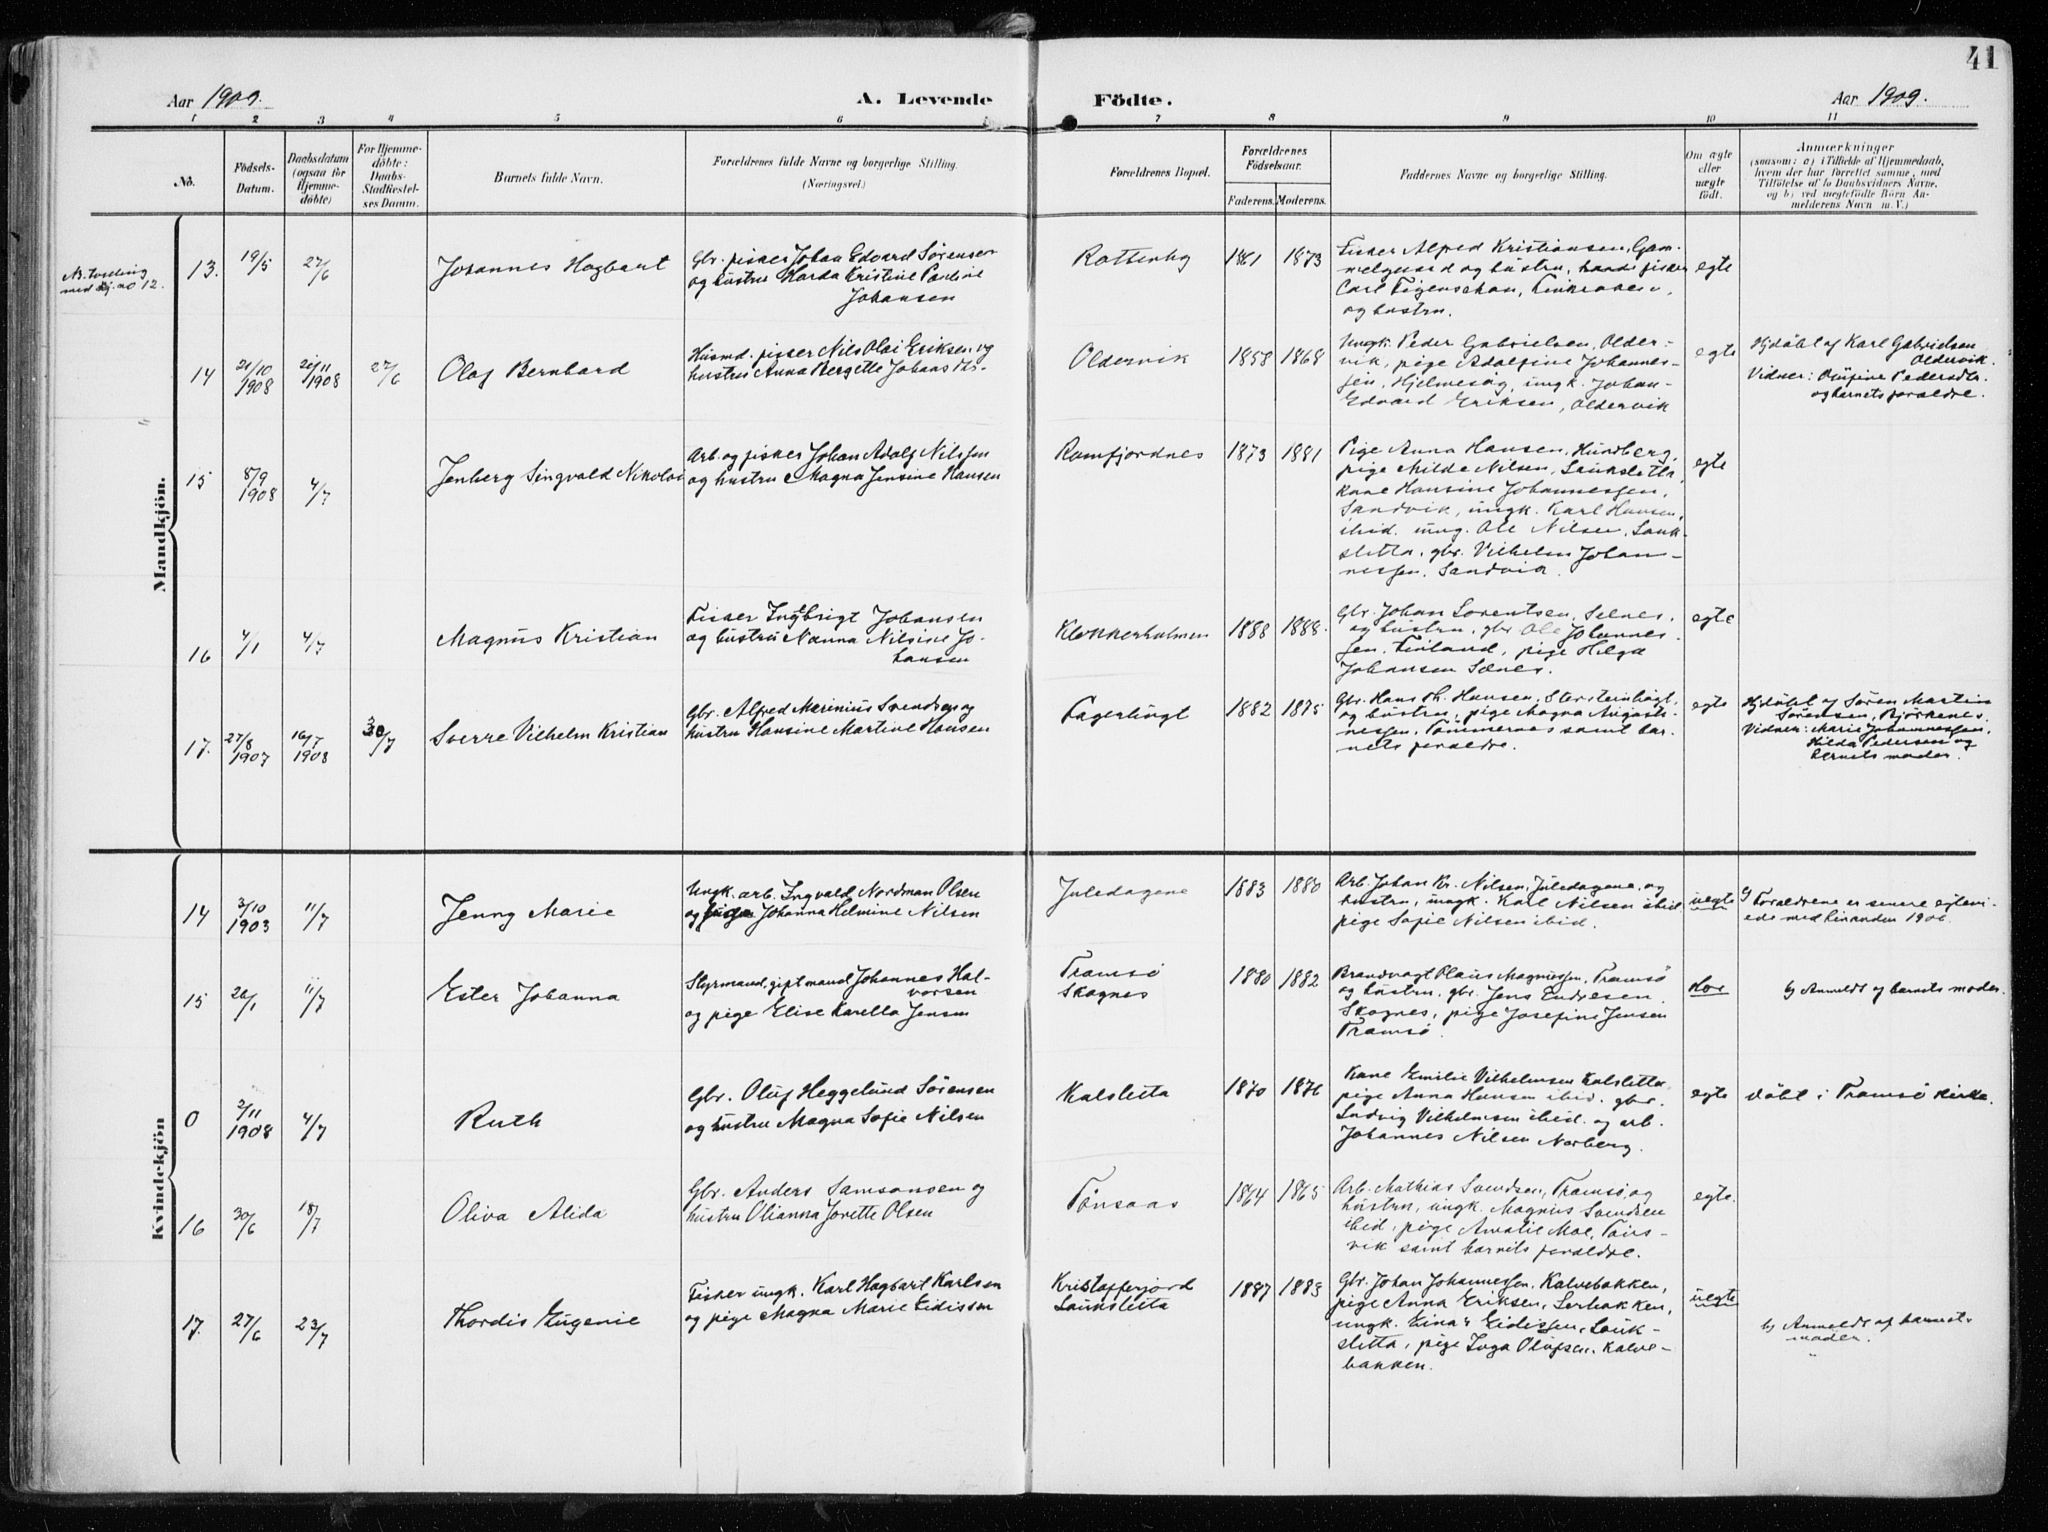 41
Aar 1909.
A. Levende
Födte.
Aar 1909.
1 2 3 4 5 6 7 8 9 10 11
No.
Födsels-
Datum.
Daabsdatum
(ogsaa för
Hjemme-
döbte)
For Hjemme-
döbte:
Daabs-
Stadfæstel-
ses Datum.
Barnets fulde Navn.
Forældrenes fulde Navne og borgerlige Stilling.
(Næringsvei.)
Forældrenes Bopæl.
Forældrenes
Födselsaar.
Faderens. Moderens.
Faddernes Navne og borgerlige Stilling.
Om ægte
eller
uægte
födt.
Anmærkninger
(saasom: a) i Tilfælde af Hjemmedaab,
hvem der har forrettet samme, med
Tilföielse af to Daabsvidners Navne,
og b) ved uægtefödte Börn An-
melderens Navn m. V.)
Mandkjön.
NB. tvilling
med no 12.
13.
19/5
27/6
Johannes Hagbart
Gbr. fisker Johan Edvard Sørensen
og hustru Harda Kristine Pauline
Johansen
1861
1873
Fisker Alfred Kristiansen, Gam-
melgaard og hustru,
Carl Figenschau,
og hustru.
egte
14
21/10
1908
1908
27/6
Olaf Bernhard
Husmd. fisker Nils Olai Eriksen og
hustru Anna Bergette Johansdtr.
Oldervik
1858
1868
Ungk. Peder Gabrielsen, Older-
vik, pige Adolfine Johannes-
sen, ungk. Johan
Edvard Eriksen, Oldervik
egte
Hjdøbt af Karl Gabrielsen
Oldervik.
Vidner: Olufine Pedersdtr.
og barnets forældre.
15
8/9
1908
4/7
Jenberg Singvald Nikolai
Arb. og fisker Johan Adolf Nilsen
og hustru Magna Jensine Hansen
Ramfjordnes
1873
1881
Pige Anna Hansen, Hundberg,
pige Milde Nilsen, Laukslette,
kone Hansine Johannessen,
Sandvik, ungk. Karl Hansen,
ibid. ung. Ole Nilsen, Lauk-
sletta, gbr. Vilhelm Johan-
nessen, Sandvik.
egte
16
4/1
4/7
Magnus Kristian
Fisker Ingebrigt Johansen
og hustru Nanna Nilsine Jo-
hansen
Klokkerholmen
1888
1888.
Gbr. Johan Lorentsen, Selnes,
og hustru, gbr. Ole Johannes-
sen, Finland, pige Hilga
Johansen Selnes.
egte
17.
27/8
1907
16/7
1908
30/7
Sverre Vilhelm Kristian
Gbr. Alfred Marinius Svendsen og
hustru Hansine Martine Hansen
Fagerbugt
1882
1875
Gbr. Hans Th. Hansen, Storsteinbugt,
og hustru, pige Magna Augusti-
nessen, Tømmernes samt bar-
nets forældre.
egte
Hjdøbt af Søren Martin
Sørensen, Bjørkenes.
Vidner: Marie Johannessen,
Hilda Pedersen og
barnets moder.
Kvindekjön
14
3/10
1903
11/7
Jenny Marie
Ungk. arb. Ingvald Nordman Olsen
og pige Johanna Helmine Nilsen
Juledagene
1883
1880
Arb. Johan Kr. Nilsen, Juledagene, og
hustru, ungk. Karl Nilsen ibid.
pige Sofie Nilsen ibid.
uegte
Forældrene er senere egtevi-
ede med hinanden
15
26/1
11/7
Ester Johanna
Styrmand, gift mand Johannes Hal-
vorsen
og pige Elise Karella Jensen
Tromsø
Skognes
1880
1882
Brandvagt Olaus Magnussen, Tromsø
og hustru, gbr. Jens Endresen
Skognes, pige Josefine Jensen
Tromsø.
Hor
b) Anmeldt af barnets moder.
0
2/11
1908
4/7
Ruth
Gbr. Oluf Heggelund Sørensen
og hustru Magna Sofie Nilsen
Kalsletta
1870
1876
Kone Emilie Vilhelmsen Kalsletta,
pige Anna Hansen ibid. gbr.
Ludvig Vilhelmsen ibid. og arb.
Johannes Nilsen Norberg.
egte
døbt i Tromsø kirke.
16
30/6
18/7
Oliva Alida
Gbr. Anders Samsonsen og
hustru Olianna Jorette Olsen
Tønsaas
1864
1865
Arb. Mathias Svendsen, Tromsø, og
hustru, ungk. Magnus Svendsen
ibid, pige Amalie Moe, Tøns-
vik samt barnets forældre.
egte.
17.
27/6
23/7
Thordis Eugenie
Fisker ungk. Karl Hagbart Karlsen
og pige Magna Marie Eidissen
Kristofferjord
Lauksletta
1887
1883
Gbr. Johan Johannessen, Kalvebakken,
pige Anna Eriksen, Sørbakken,
ungk. Einar Eidissen, Lauk-
sletta, pige Inga Olufsen, Kalve-
bakken.
uegte
b) Anmeldt af barnets
moder.